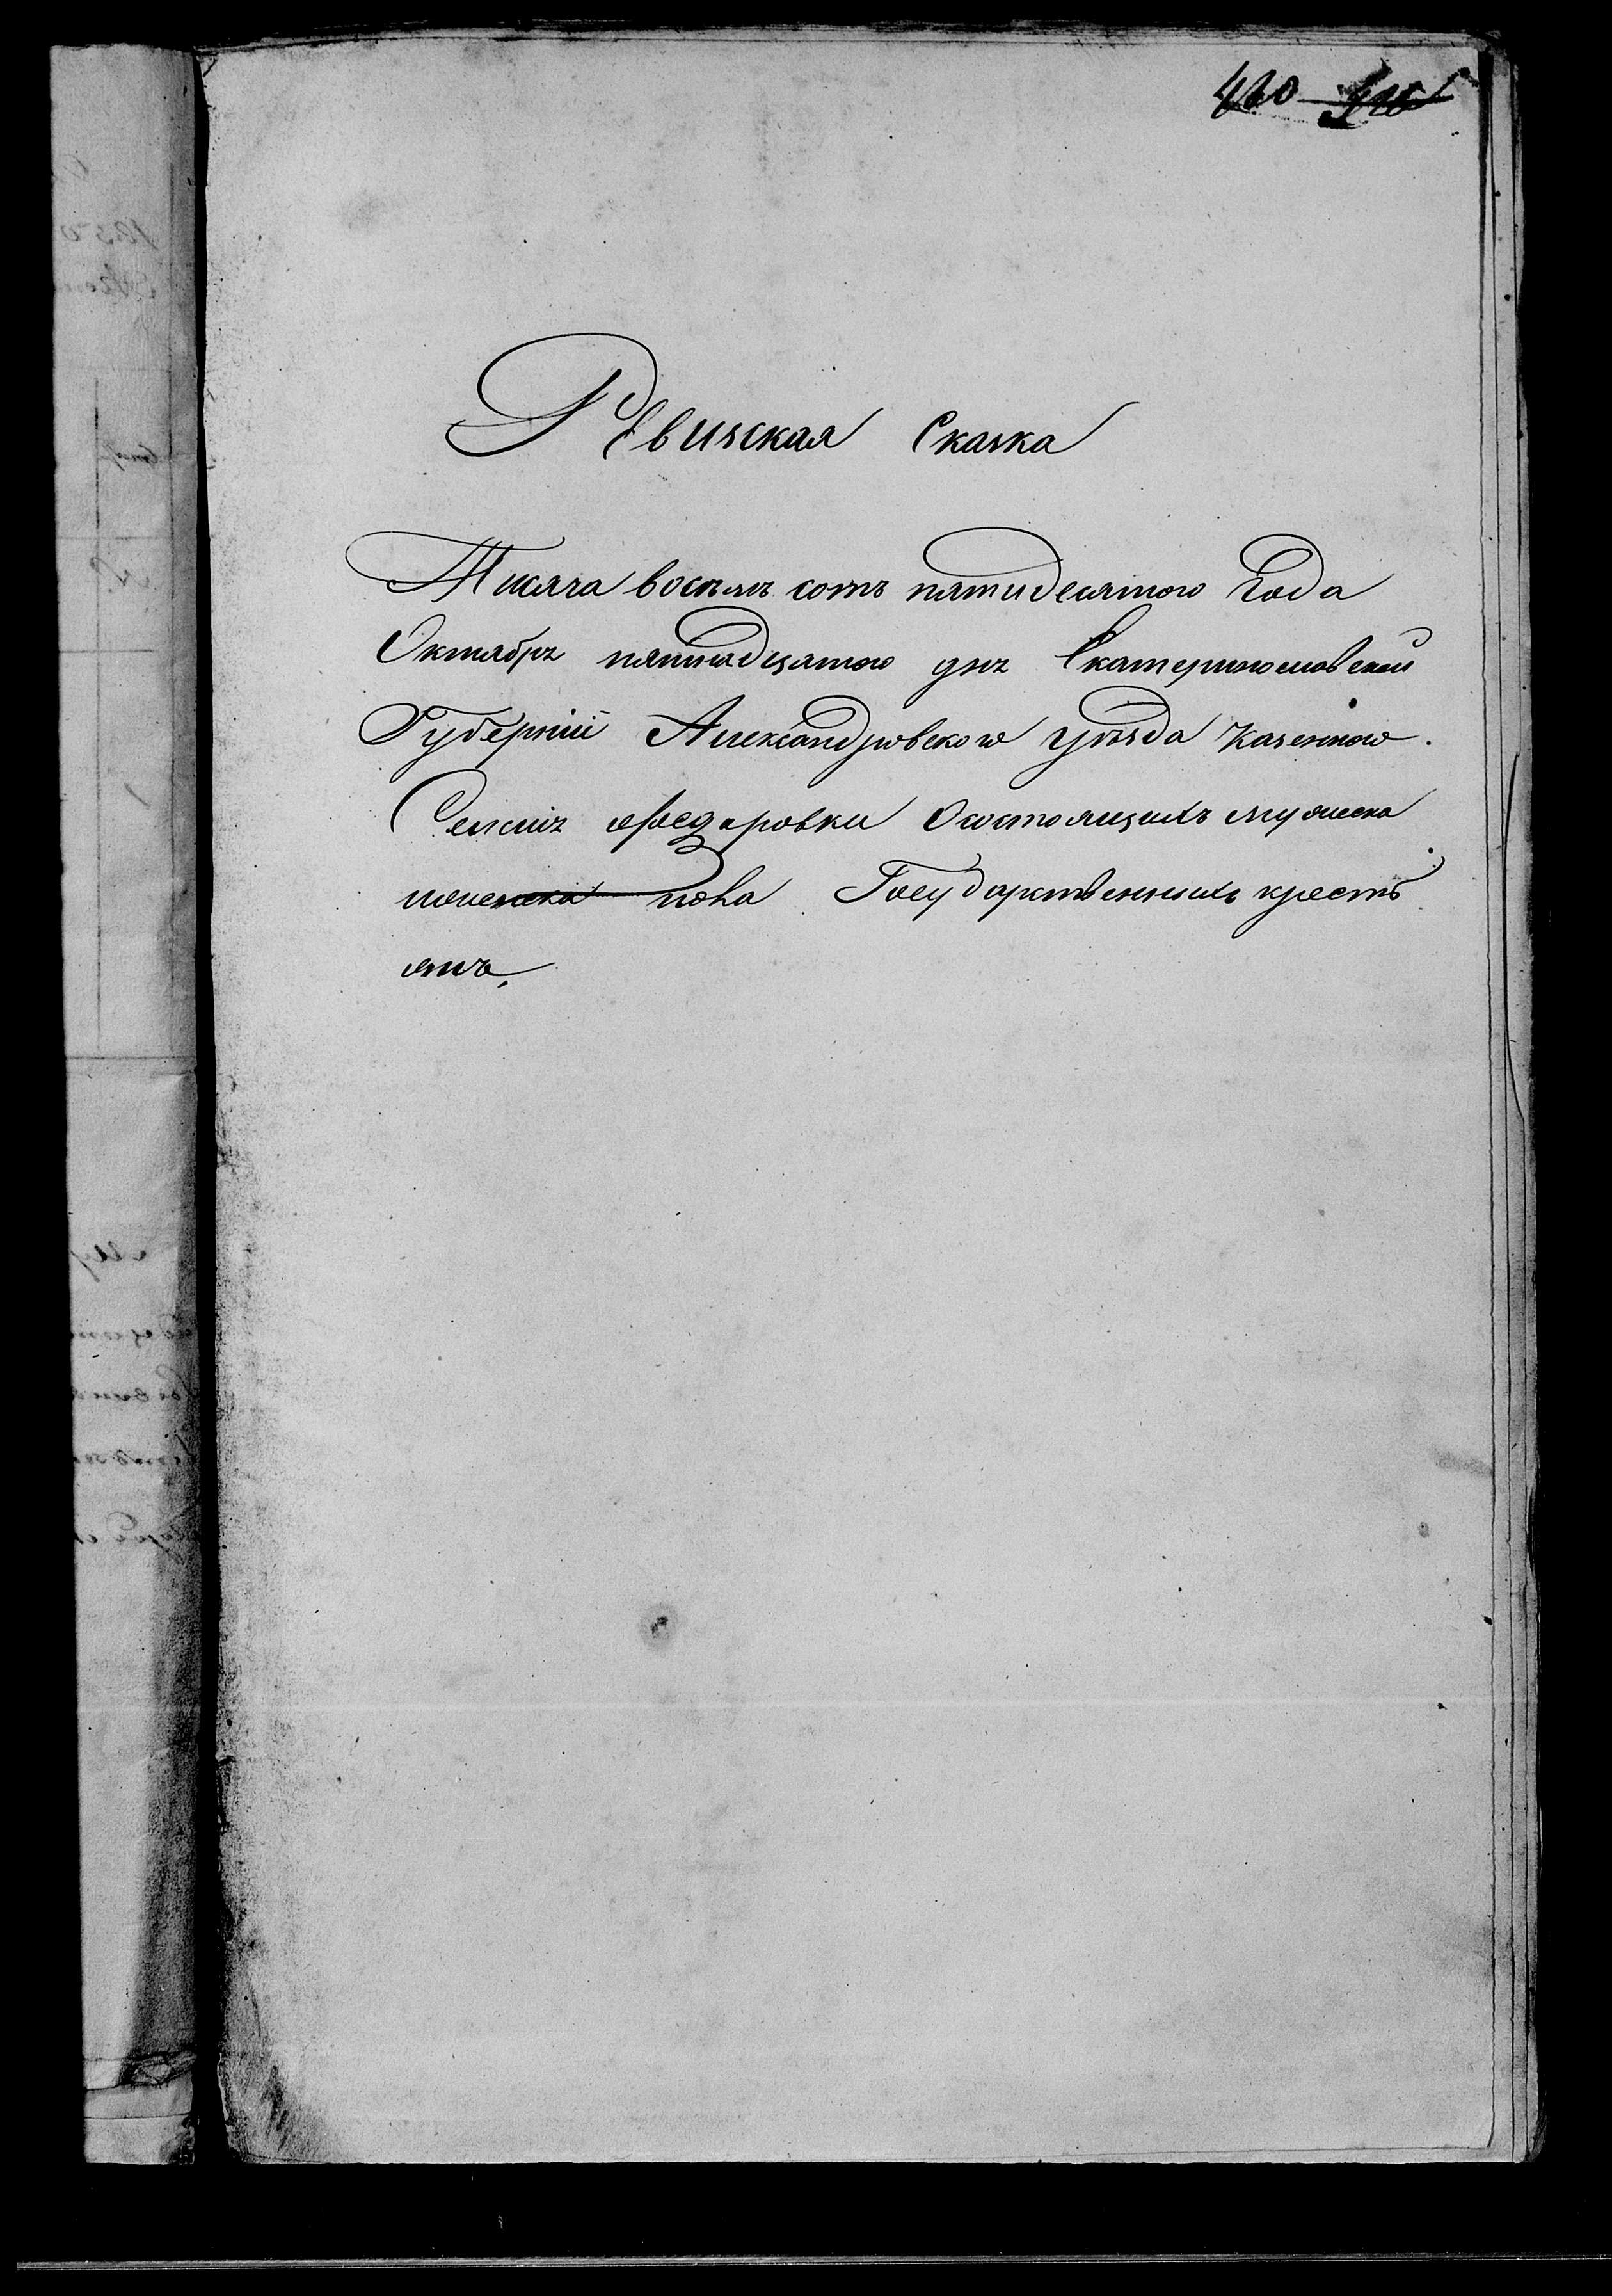 420
Ревизская Сказка
Тысяча восемь сотъ пятидесятого Года
Октября пятнадцатого дня Екатеринославской
Губерніи Александровского уѣзда Казенного
Селенія Федаровки Осостоящихъ мужеска
иженска пола Государственныхъ кресть
янъ.